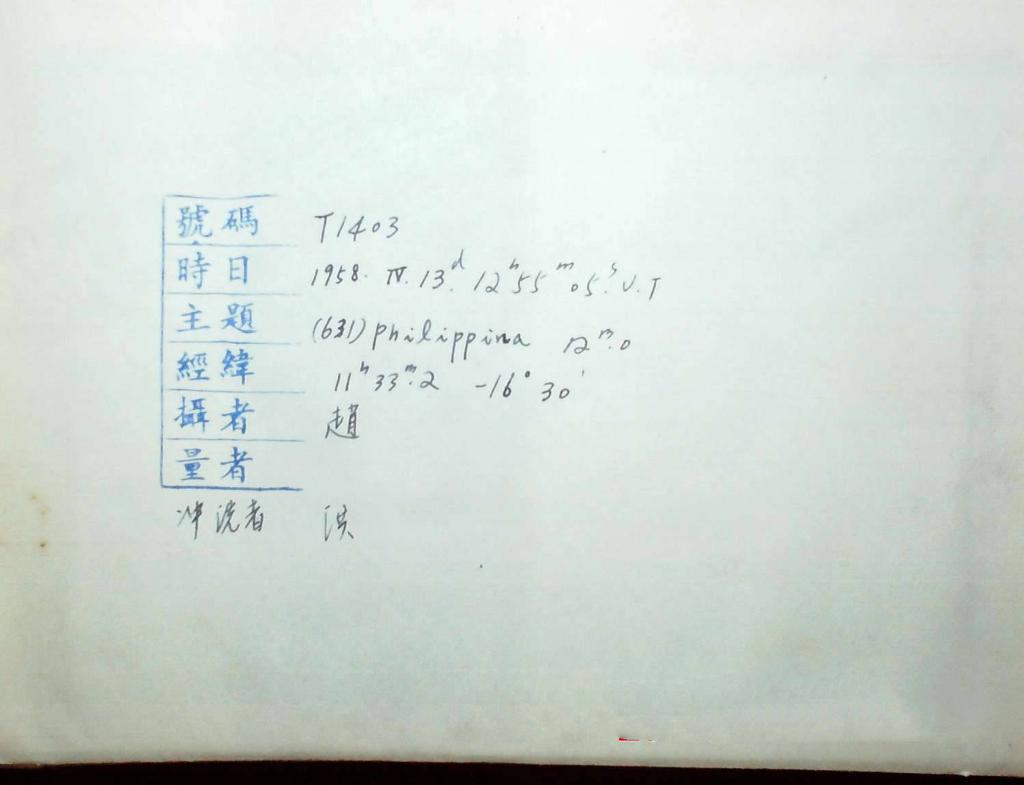 號碼 T1403
時日 1958. IV. 13.ᵈ 12ʰ55ᵐ05.ˢ U.T
主題 (631) philippina 12ᵐ.0
經緯 11ʰ33ᵐ.2 -16° 30'
攝者 趙
量者
冲洗者 洪